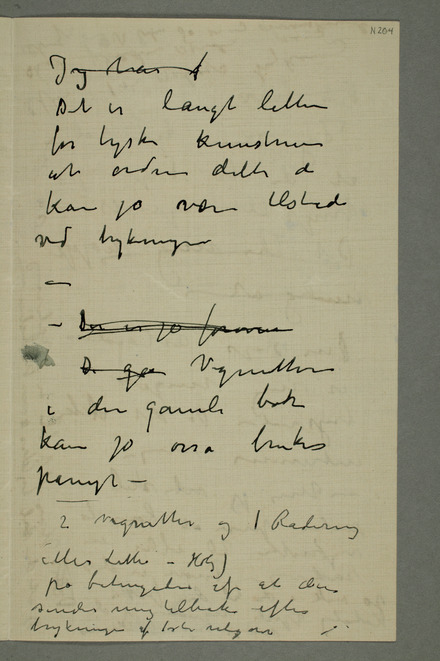 N 204
Jeg har
Det er langt lettere
for tyske kunstnere
at ordne dette de
kan jo være tilstede
ved trykningen
—
– Der er jo
De gan Vignetter
i den gamle bok
kan jo også brukes
panyt –
2 vignetter og 1 Radering
eller Litho – Holz
på betingelse af at den
sendes mig tilbake efter
trykningen